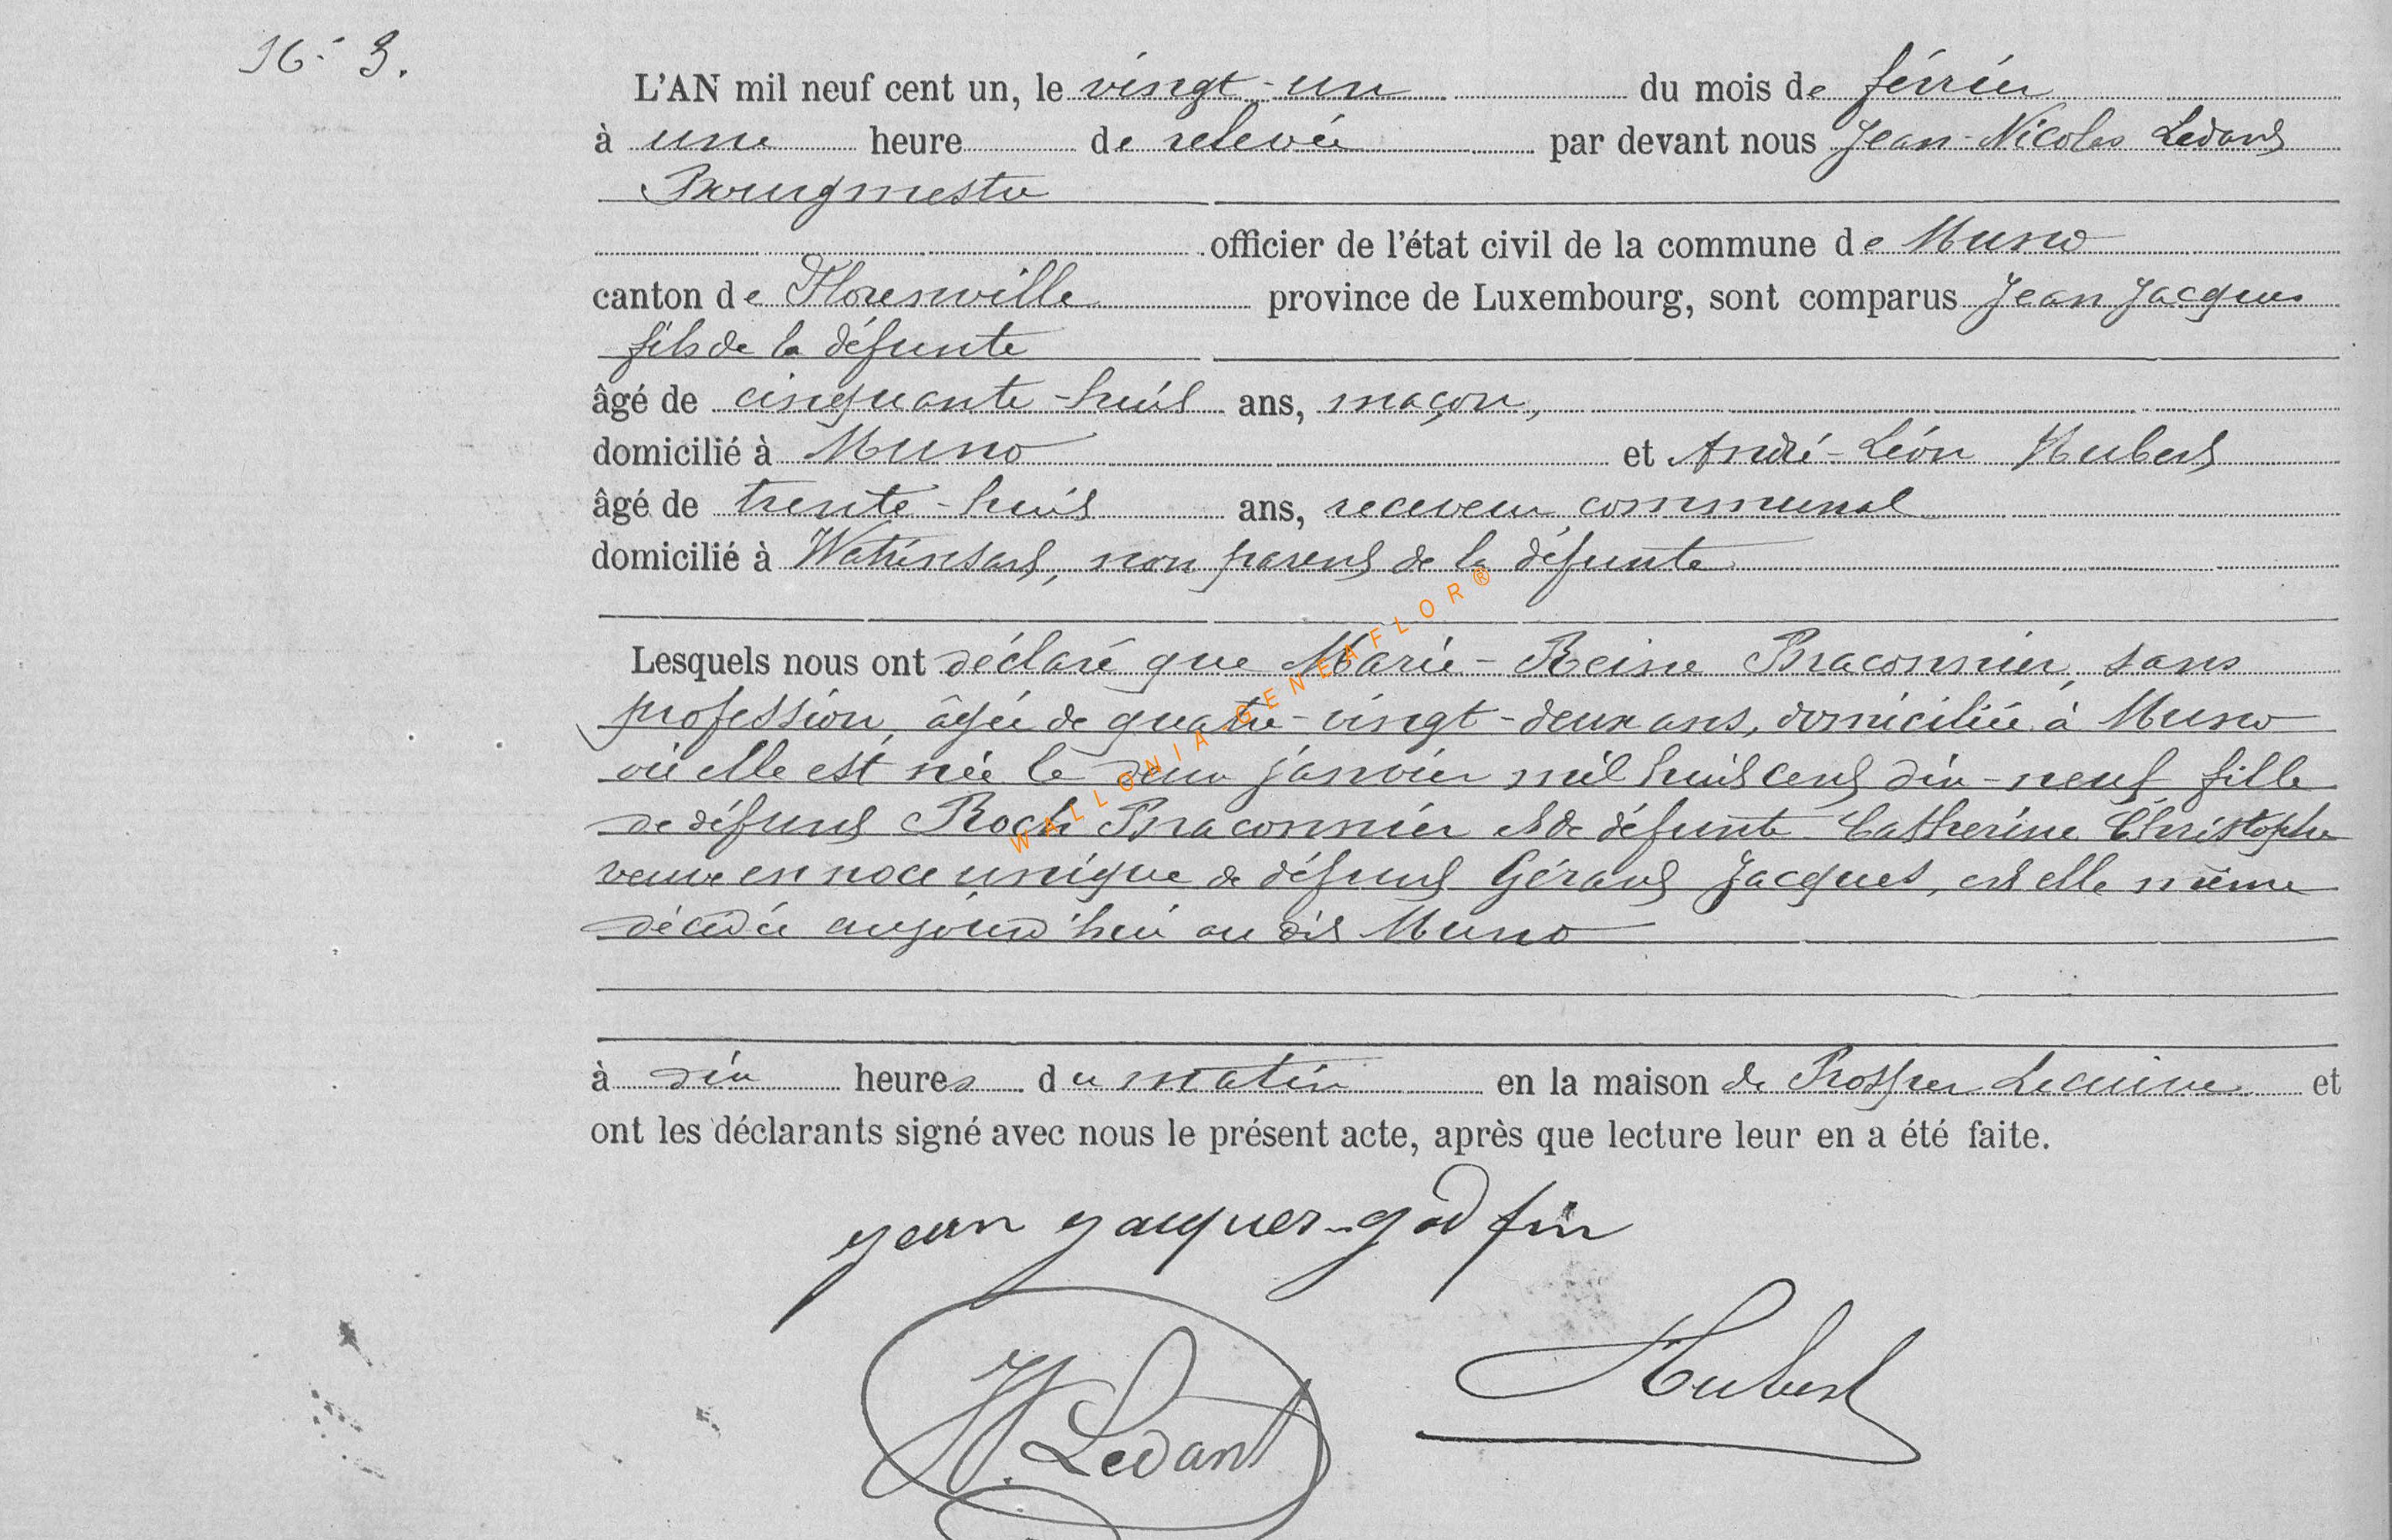 N° 3.
L'AN mil neuf cent un, le vingt-un du mois de février
à une heure de relevée par devant nous Jean-Nicolas Ledant
Bourgmestre
officier de l'état civil de la commune de Muno
canton de Florenville province de Luxembourg, sont comparus Jean Jacques
fils de la défunte
âgé de cinquante-huit ans, maçon,
domicilié à Muno et André-Léon Hubert
âgé de trente-huit ans, receveur communal
domicilié à Watrinsart, non parent de la défunte
Lesquels nous ont déclaré que Marie-Reine Braconnier, sans
profession, âgée de quatre-vingt-deux ans, domiciliée à Muno
où elle est née le deux janvier mil huit cent dix-neuf fille
de défunt Roch Braconnier et de défunte Catherine Christophe
veuve en noce unique de défunt Gérard Jacques, est elle même
décédée aujourd'hui au dit Muno
à dix heures du matin en la maison de Prosper et
ont les déclarants signé avec nous le présent acte, après que lecture leur en a été faite.
jean jacques-godfrin
Hubert
JN. Ledant
WALLONIA-GENEAFLOR®